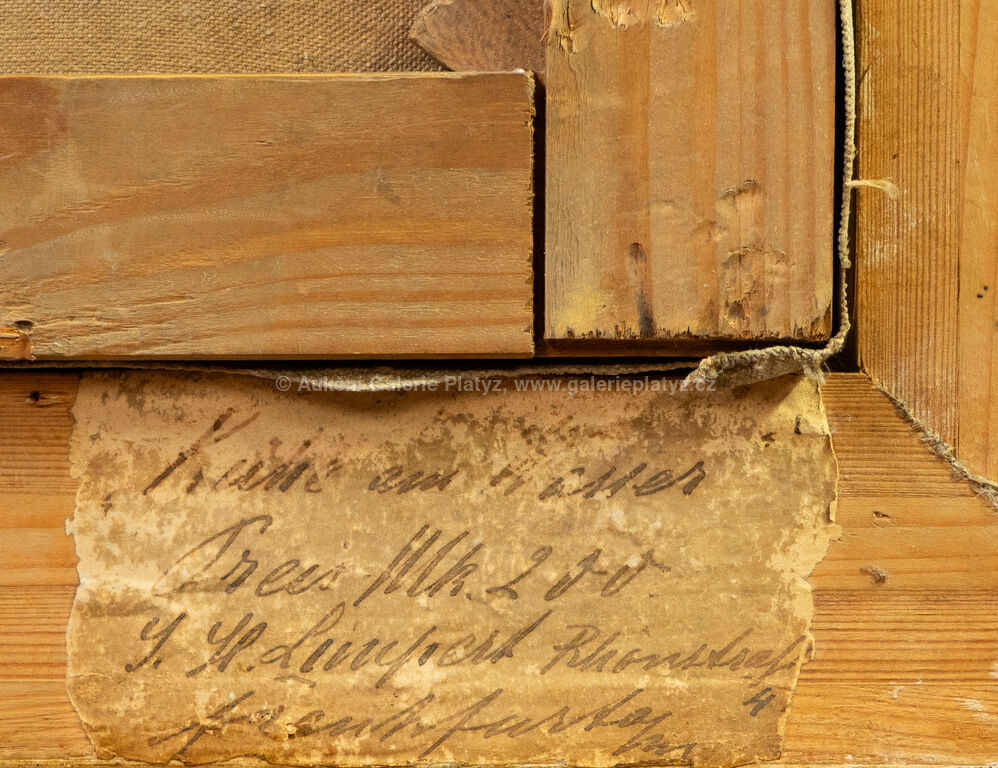 © Aukční Galerie Platýz, www.galerieplatyz.cz
am Wasser
Preis Mk. 200
J. H. Limpert Rhönstraße
4
Frankfurt a/M